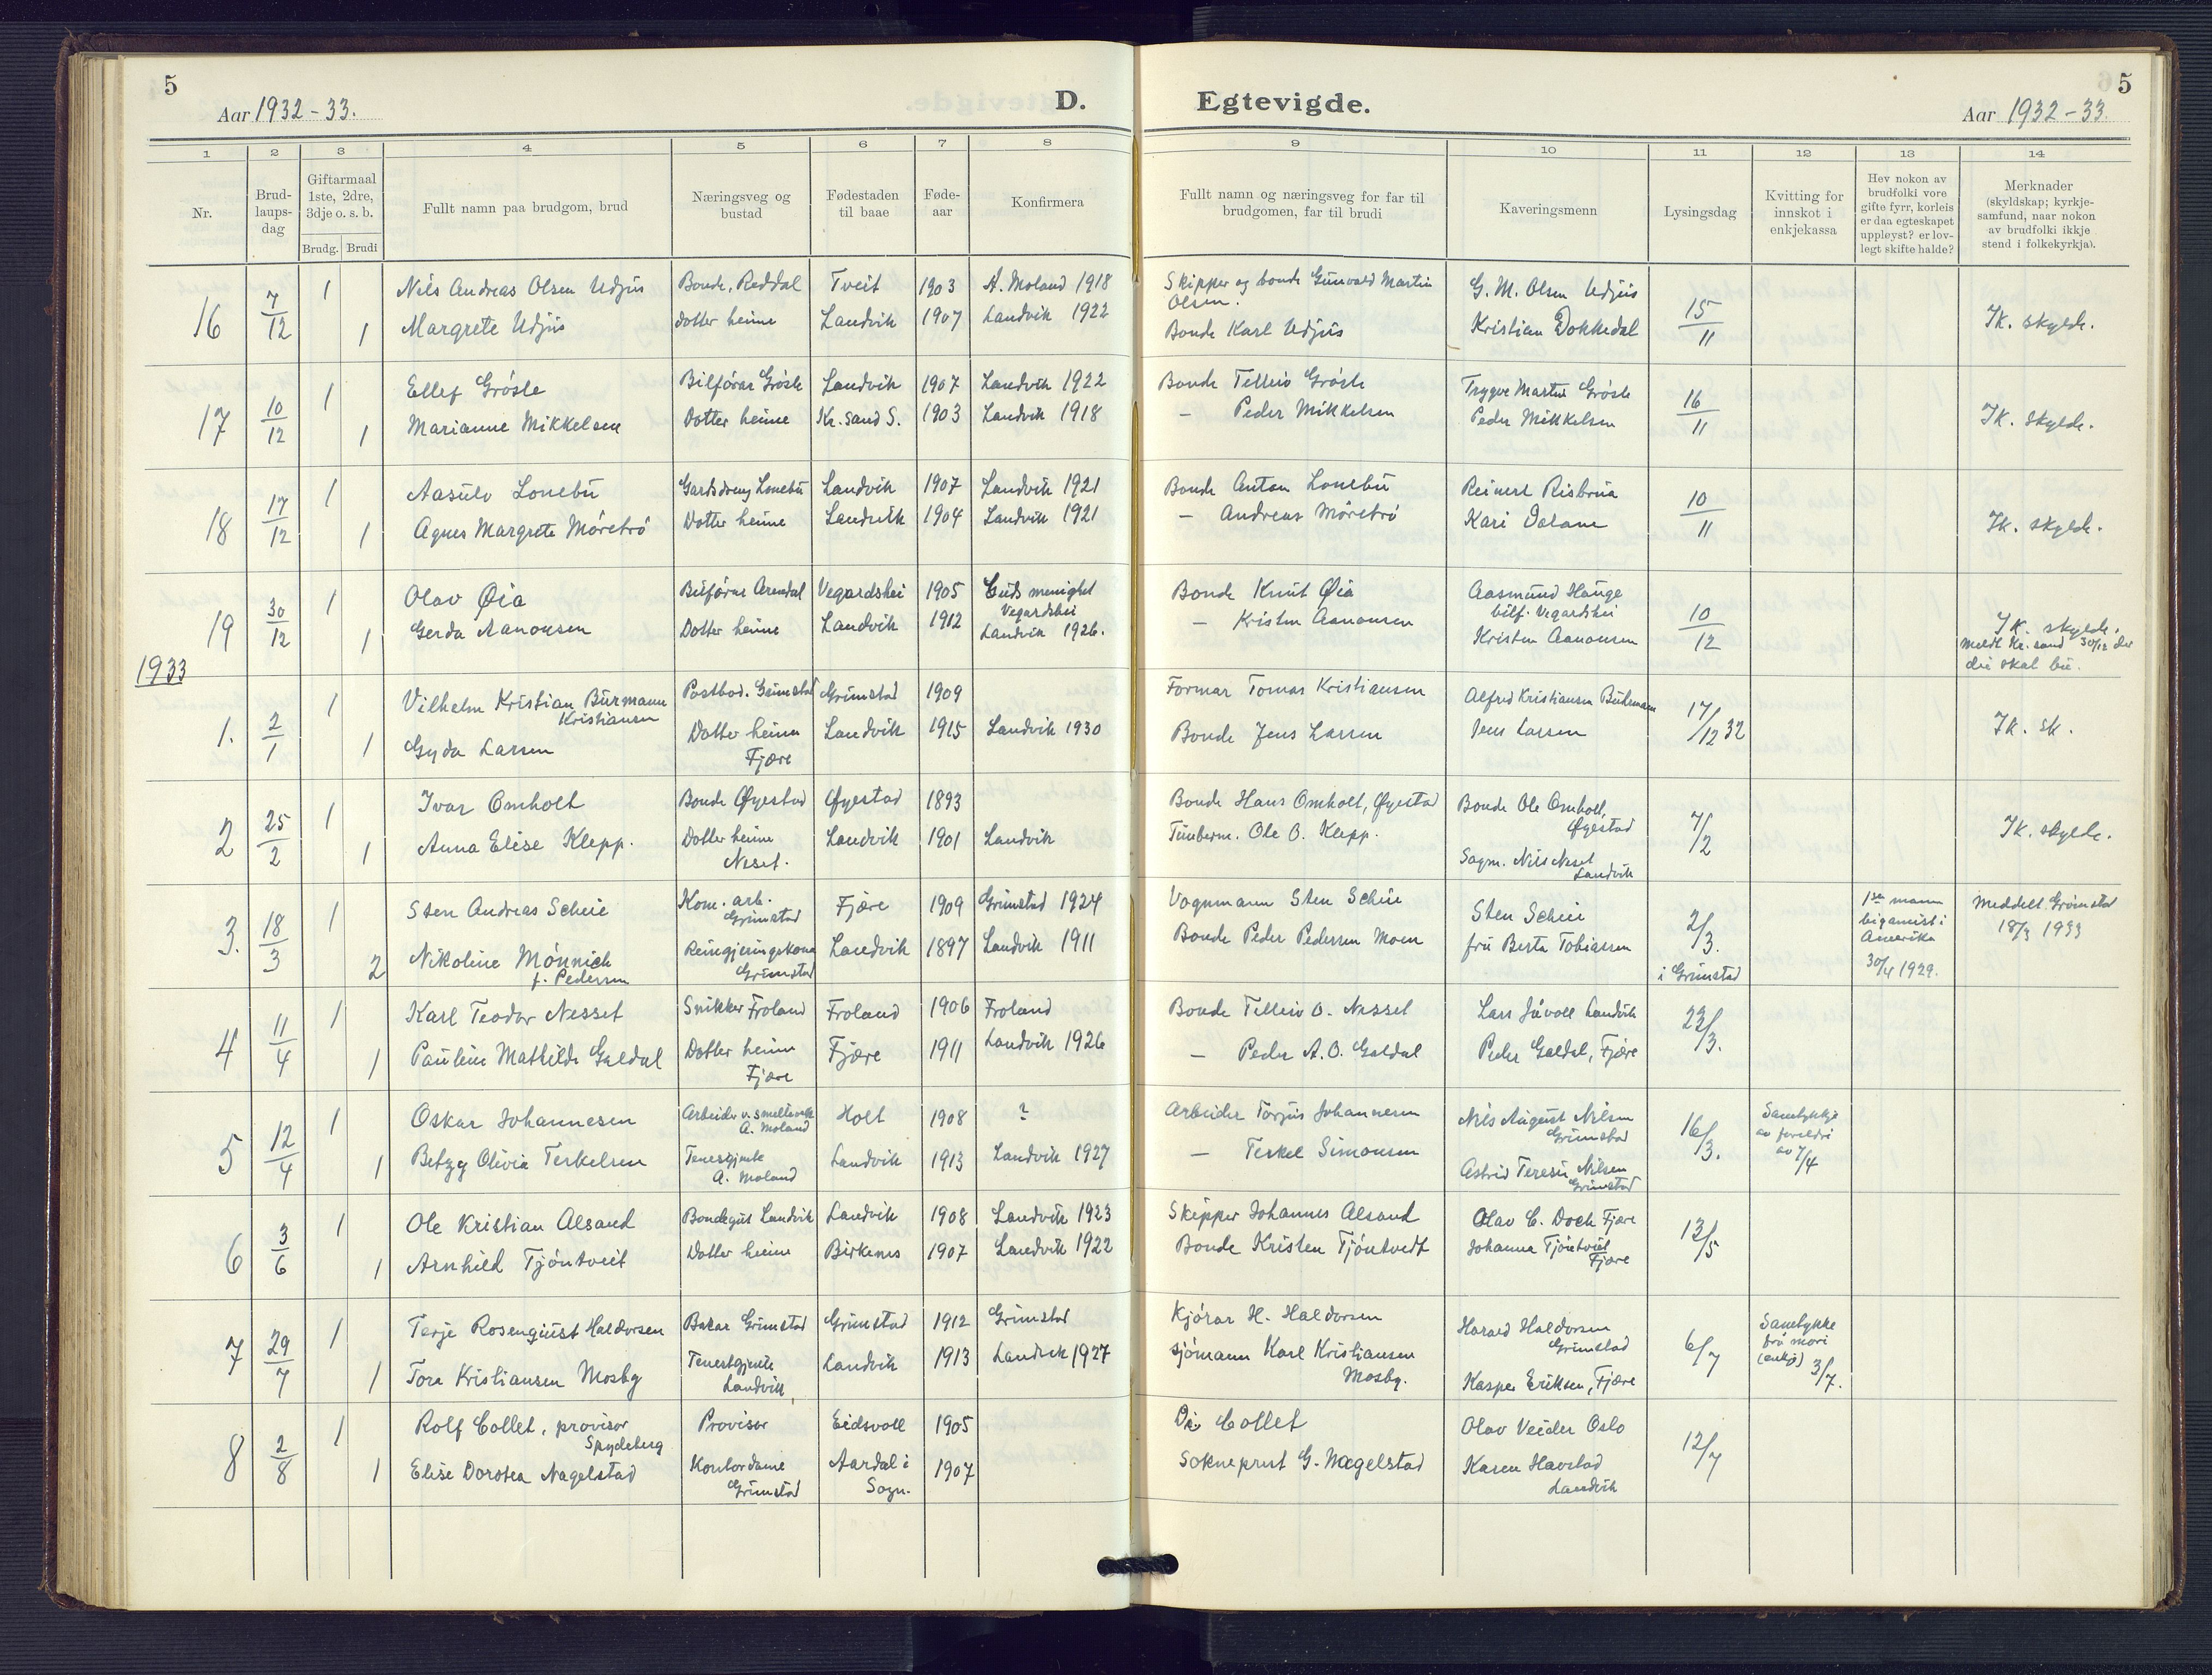 5
Aar 1932-33.
D.
Egtevigde.
Aar 1932-33.
5
1 2 3 4 5 6 7 8 9 10 11 12 13 14
Nr.
Brud-
laups-
dag
Giftarmaal
1ste, 2dre,
3dje o. s. b.
Brudg. Brudi
Fullt namn paa brudgom, brud
Næringsveg og
bustad
Fødestaden
til baae
Føde-
aar
Konfirmera
Fullt namn og næringsveg for far til
brudgomen, far til brudi
Kaveringsmenn
Lysingsdag
Kvitting for
innskot i
enkjekassa
Hev nokon av
brudfolki vore
gifte fyrr, korleis
er daa egteskapet
uppløyst? er lov-
legt skifte halde?
Merknader
(skyldskap; kyrkje-
samfund, naar nokon
av brudfolki ikkje
stend i folkekyrkja).
16 7/12 1 Nils Andreas Olsen Udjus Bonde, Reddal Tveit 1903 A. Moland 1918 Skipper og bonde Gunvald Martin
Olsen. G. M. Olsen Udjus
1 Margrete Udjus Dotter heime Landvik 1907 Landvik 1922 Bonde Karl Udjus Kristian Dokkedal 15/11 Ik. skylde.
17 10/12 1 Ellef Grøsle Bilførar Grøsle Landvik 1907 Landvik 1922 Bonde Telleiv Grøsle Trygve Martin Grøsle 16/11
1 Marianne Mikkelsen Dotter heime Kr. sand S. 1903 Landvik 1918 – Peder Mikkelsen Peder Mikkelsen Ik. skylde.
18 17/12 1 Aasulv Lonebu Gardsdreng Lonebu Landvik 1907 Landvik 1921 Bonde Anton Lonebu Reinert Risbrua 10/11
1 Agnes Margrete Møretrø Dotter heime Landvik 1904 Landvik 1921 – Andreas Møretrø Kari Dalane Ik. skylde.
19 30/12 1 Olav Øia Bilførar Arendal Vegardshei 1905 Guds menighet
Vegardshei Bonde Knut Øia Aasmund Hauge
bilf. Vegardshei 10/12
1 Gerda Aanonsen Dotter heime Landvik 1912 Landvik 1926. – Kristen Aanonsen Kristen Aanonsen Ik. skylde.
Meldt Kr. sand 30/12 der
dei skal bu.
1933
1. 2/1 1 Vilhelm Kristian Burmann
Kristiansen Postbod. Grimstad Grimstad 1909 Formar Tomas Kristiansen Alfred Kristiansen 17/12 32
1 Gyda Larsen Dotter heime
Fjære Landvik 1915 Landvik 1930 Bonde Jens Larsen Jens Larsen Ik. sk.
2 25/2 1 Ivar Omholt Bonde Øyestad Øyestad 1893 Bonde Hans Omholt, Øyestad Bonde Ole Omholt,
Øyestad 7/2
1 Anna Elise Klepp. Dotter heime
Neset. Landvik 1901 Landvik Timberm. Ole O. Klepp. Sagm. Nils Neset
Landvik Ik. skylde.
3. 18/3 1 Sten Andreas Scheie Kom. arb.
Grimstad Fjære 1909 Grimstad 1924 Vognmann Sten Scheie Sten Scheie 2/3.
i Grimstad
2 Nikoline Mønnich
f. Pedersen Reingjeringskona
Grimstad Landvik 1897 Landvik 1911 Bonde Peder Pedersen Moen fru Berta Tobiassen
1ste mann
bigamist i
Amerika
30/4 1929.
Meddelt Grimstad
18/3 1933
4 11/4 1 Karl Teodor Nesset Snikker Froland Froland 1906 Froland Bonde Telleiv O. Nesset Lars Jåvoll Landvik 22/3.
1 Pauline Mathilde Galdal Dotter heime
Fjære Fjære 1911 Landvik 1926 – Peder A. O. Galdal Peder Galdal, Fjære
5 12/4 1 Oskar Johannesen Arbeider v. smelteverk
A. Moland Holt 1908 ? Arbeider Torjus Johannesen Nils August Nilsen
Grimstad 16/3. Samtykkje
av foreldri
av 7/4
1 Betzy Olivia Terkelsen Tenestgjente
A. Moland Landvik 1913 Landvik 1927 – Terkel Simonsen Astrid Terese Nilsen
Grimstad
6 3/6 1 Ole Kristian Alsand Bondegut Landvik Landvik 1908 Landvik 1923 Skipper Johannes Alsand Olav C. Doch Fjære 13/5
1 Arnhild Tjøntveit Dotter heime Birkenes 1907 Landvik 1922 Bonde Kristen Tjøntvedt Johanna Tjøntveit
Fjære
7 29/7 1 Terje Rosenqiust Haldorsen Bakar Grimstad Grimstad 1912 Grimstad Kjørar H. Haldorsen Harald Haldorsen
Grimstad 6/7 Samtykke
frå mori
(enkj) 3/7.
1 Tora Kristiansen Mosby Tenestgjente
Landvik Landvik 1913 Landvik 1927 Sjømann Karl Kristiansen
Mosby. Kasper Eriksen, Fjære
8 2/8 1 Rolf Collet, provisor
Spydeberg Provisor Eidsvoll 1905 Collet Olav Veider Oslo 12/7
1 Elise Dorotea Nagelstad Kontordame
Grimstad Aardal i
Sogn. 1907 Sokneprest G. Nagelstad Karen Havstad
Landvik